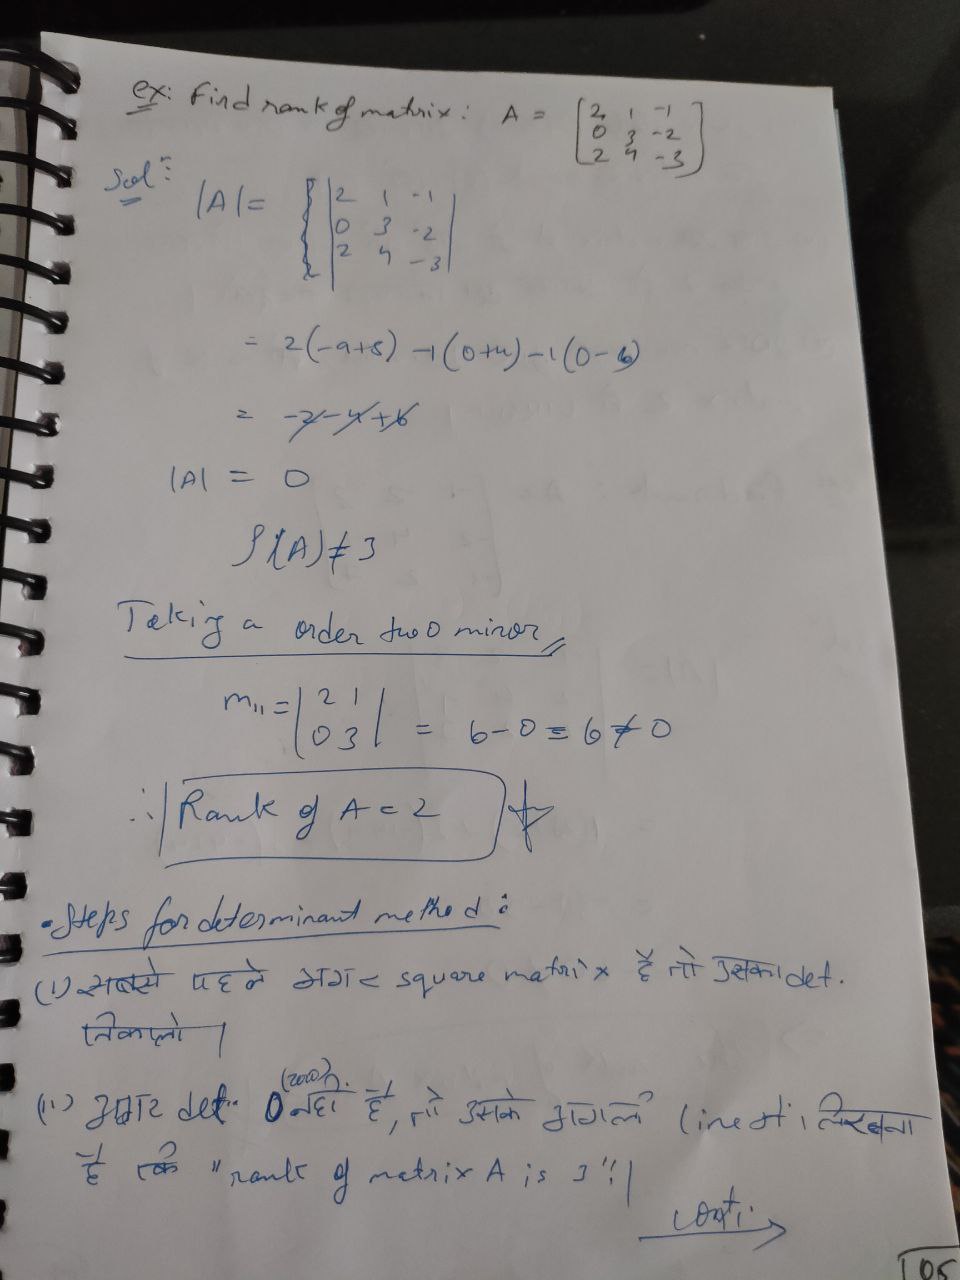 ex: Find rank of matrix: A = [2 1 -1
0 3 -2
2 4 -3]
Sol^n:
|A| = |2 1 -1
0 3 -2
2 4 -3|
= 2(-9+8) -1(0+4) -1(0-6)
= -2-4+6
|A| = 0
ρ(A) ≠ 3
Taking a order two minor
m₁₁ = |2 1
0 3| = 6-0 = 6 ≠ 0
∴ Rank of A = 2
• Steps for determinant method :
(i) सबसे पहले अगर square matrix है तो उसका det.
निकालो |
(zero)
(ii) अगर det. 0 नहीं है, तो उसके अगली line में लिखना
है कि "rank of matrix A is 3" |
conti.
105